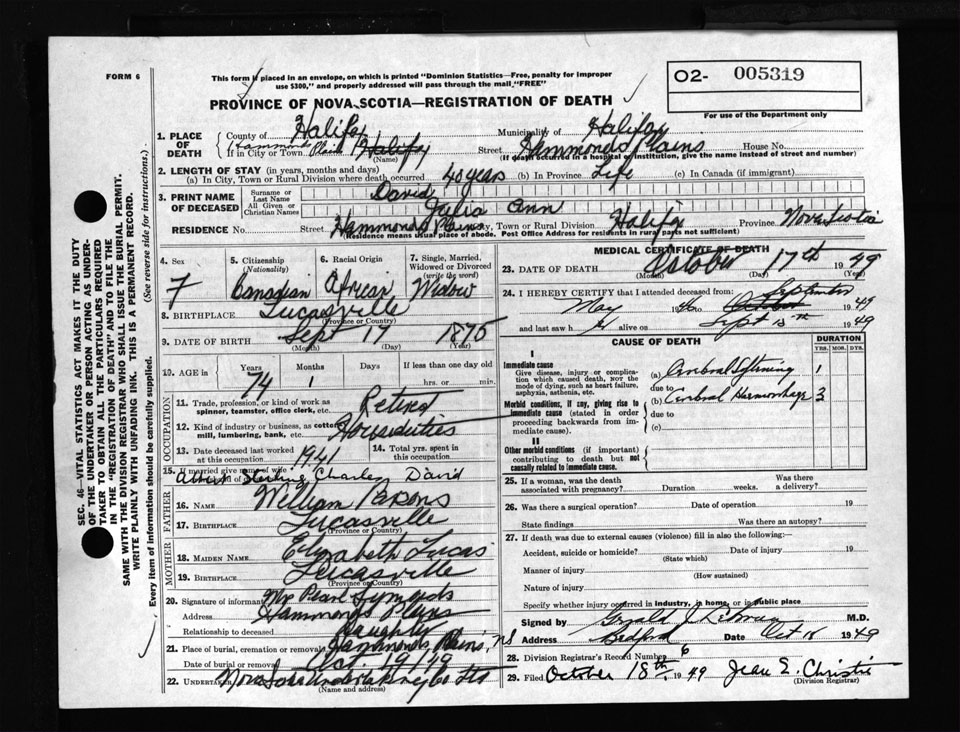 FORM 6
This form is placed in an envelope, on which is printed "Dominion Statistics—Free, penalty for improper
use $300," and properly addressed will pass through the mail "FREE"
O2- 005319
For use of the Department only
PROVINCE OF NOVA SCOTIA—REGISTRATION OF DEATH
1. PLACE OF DEATH
County of Halifax Municipality of Halifax
If in City or Town Hammonds Plains Halifax (Name) Street Hammonds Plains House No.
(If death occurred in a hospital or institution, give the name instead of street and number)
2. LENGTH OF STAY (in years, months and days)
(a) In City, Town or Rural Division where death occurred 40 years (b) In Province Life (c) In Canada (if immigrant)
3. PRINT NAME OF DECEASED
Surname or Last Name David
All Given or Christian Names Julia Ann
RESIDENCE No. Street Hammonds Plains City, Town or Rural Division Halifax Province Nova Scotia
(Residence means usual place of abode. Post Office Address for residents in rural parts not sufficient)
4. Sex F
5. Citizenship (Nationality) Canadian
6. Racial Origin African
7. Single, Married, Widowed or Divorced (write the word) Widow
8. BIRTHPLACE Lucasville
(Province or Country)
9. DATE OF BIRTH Sept 17 1875
(Month) (Day) (Year)
10. AGE in Years 74 Months 1 Days If less than one day old hrs. or min.
OCCUPATION
11. Trade, profession, or kind of work as spinner, teamster, office clerk, etc. Retired
12. Kind of industry or business, as cotton mill, lumbering, bank, etc. Houseduties
13. Date deceased last worked at this occupation 1941
14. Total yrs. spent in this occupation
15. If married give name of wife or husband Charley David
FATHER
16. NAME William Parsons
17. BIRTHPLACE Lucasville
(Province or Country)
MOTHER
18. MAIDEN NAME Elizabeth Lucas
19. BIRTHPLACE Lucasville
(Province or Country)
20. Signature of informant Mrs Pearl Symonds
Address Hammonds Plains
Relationship to deceased daughter
21. Place of burial, cremation or removal Hammonds Plains, NS
Date of burial or removal Oct. 19/49
22. UNDERTAKER Nova Scotia Undertaking Co Ltd
(Name and address)
MEDICAL CERTIFICATE OF DEATH
23. DATE OF DEATH October 17th 1949
(Month) (Day) (Year)
24. I HEREBY CERTIFY that I attended deceased from
May 1946 to October September 1949
and last saw h alive on Sept 15th 1949
CAUSE OF DEATH
DURATION
YRS. MOS. DYS.
I
Immediate cause
Give disease, injury or complication which caused death, NOT the mode of dying, such as heart failure, asphyxia, asthenia, etc.
(a) Cerebral Softening 1
due to
Morbid conditions, if any, giving rise to immediate cause (stated in order proceeding backwards from immediate cause).
(b) Cerebral Hemorrhage 3
due to
(c)
II
Other morbid conditions (if important) contributing to death but not causally related to immediate cause.
25. If a woman, was the death associated with pregnancy? Duration weeks. Was there a delivery?
26. Was there a surgical operation? Date of operation 19
State findings Was there an autopsy?
27. If death was due to external causes (violence) fill in also the following:
Accident, suicide or homicide? Date of injury 19
(State which)
Manner of injury
(How sustained)
Nature of injury
Specify whether injury occurred in industry, a home, or in public place
Signed by M.D.
Address Bedford Date Oct 18 1949
28. Division Registrar's Record Number 6
29. Filed October 18th 1949 Jean E. Christie
(Division Registrar)
SEC. 46—VITAL STATISTICS ACT MAKES IT THE DUTY
OF THE UNDERTAKER OR PERSON ACTING AS UNDER-
TAKER TO OBTAIN ALL THE PARTICULARS REQUIRED
IN THE "REGISTRATION OF DEATH" AND TO FILE THE
SAME WITH THE DIVISION REGISTRAR WHO SHALL ISSUE THE BURIAL PERMIT.
WRITE PLAINLY WITH UNFADING INK. THIS IS A PERMANENT RECORD.
Every item of information should be carefully supplied. (See reverse side for instructions.)